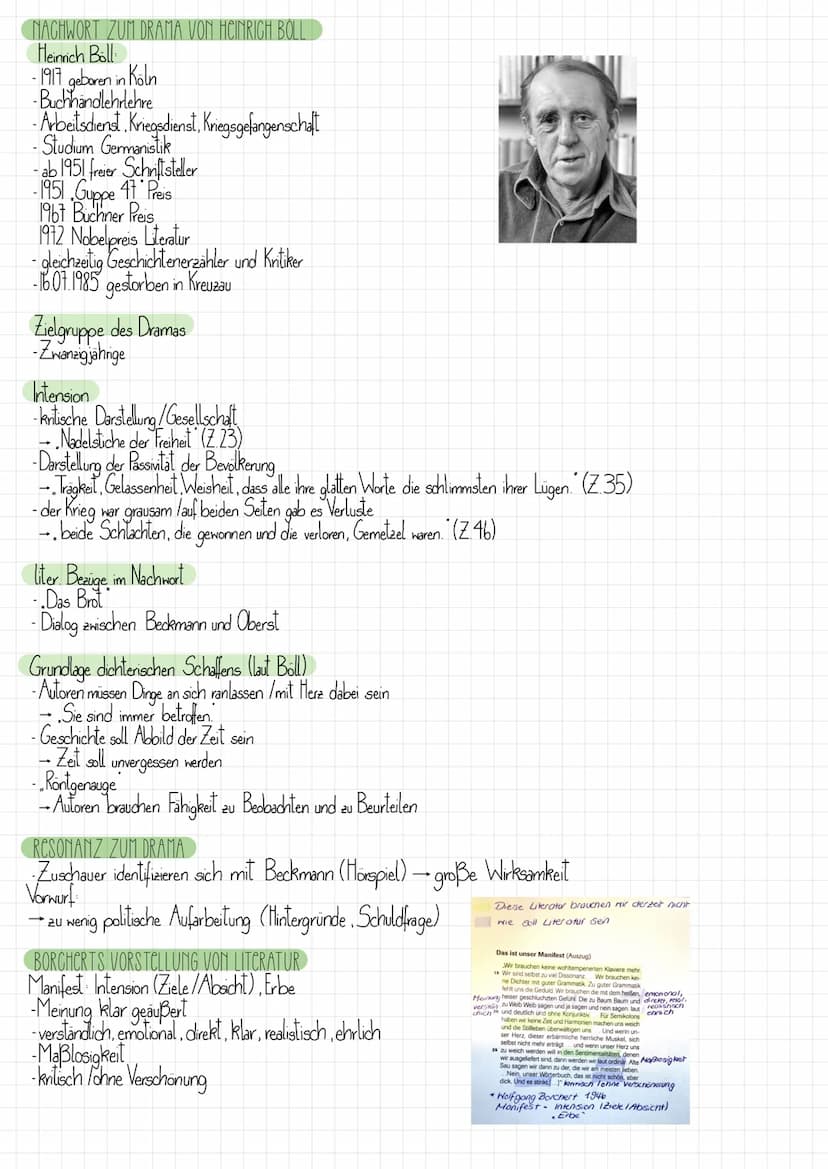 NACHWORT ZUM DRAMA VON HEINRICH BÖLL
Heinrich Böll:
- 1917 geboren in Köln
- Buchhändlerlehre
- Arbeitsdienst, Kriegsdienst, Kriegsgefangenschaft
- Studium Germanistik
- ab 1951 freier Schriftsteller
- 1951 „Guppe 47" Preis
1967 Büchner Preis
1972 Nobelpreis Literatur
- gleichzeitig Geschichtenerzähler und Kritiker
- 16.07.1985 gestorben in Kreuzau
Zielgruppe des Dramas
- Zwanzigjährige
Intension
- kritische Darstellung/Gesellschaft
→ „Nadelstiche der Freiheit" (Z.23)
- Darstellung der Passivität der Bevölkerung
→ „Trägkeit, Gelassenheit, Weisheit, dass alle ihre glatten Worte die schlimmsten ihrer Lügen." (Z.35)
- der Krieg war grausam /auf beiden Seiten gab es Verluste
→ „beide Schlachten, die gewonnen und die verloren, Gemetzel waren." (Z.46)
liter. Bezüge im Nachwort
- „Das Brot"
- Dialog zwischen Beckmann und Oberst
Grundlage dichterischen Schaffens (laut Böll)
- Autoren müssen Dinge an sich ranlassen /mit Herz dabei sein
→ „Sie sind immer betroffen."
- Geschichte soll Abbild der Zeit sein
→ Zeit soll unvergessen werden
- „Röntgenauge"
→ Autoren brauchen Fähigkeit zu Beobachten und zu Beurteilen
RESONANZ ZUM DRAMA
- Zuschauer identifizieren sich mit Beckmann (Hörspiel) → große Wirksamkeit
Vorwurf:
→ zu wenig politische Aufarbeitung (Hintergründe, Schuldfrage)
BORCHERTS VORSTELLUNG VON LITERATUR
Manifest: Intension (Ziele/Absicht), Erbe
- Meinung klar geäußert
- verständlich, emotional, direkt, klar, realistisch, ehrlich
- Maßlosigkeit
- kritisch /ohne Verschönung
Diese Literatur brauchen wir derzeit nicht
wie soll Literatur sein
Das ist unser Manifest (Auszug)
„Wir brauchen keine wohltemperierten Klaviere mehr.
Wir sind selbst zu viel Dissonanz. Wir brauchen kei-
ne Dichter mit guter Grammatik. Zu guter Grammatik
fehlt uns die Geduld. Wir brauchen die mit dem heißen,
heiser geschluchzten Gefühl. Die zu Baum Baum und
zu Weib Weib sagen und ja sagen und nein sagen: laut
und deutlich und ohne Konjunktiv. Für Semikolons
haben wir keine Zeit und Harmonien machen uns weich
und die Stillleben überwältigen uns Und wenn un-
ser Herz, dieser erbärmliche herrliche Muskel, sich
selbst nicht mehr erträgt und wenn unser Herz uns
zu weich werden will in den Sentimentalitäten, denen
wir ausgeliefert sind, dann werden wir laut ordinär. Alte
Sau sagen wir dann zu der, die wir am meisten lieben.
Nein, unser Wörterbuch, das ist nicht schön, aber
dick. Und es stinkt.
emotional,
direkt, klar,
realistisch
ehrlich
Meinung
Maßlosigkeit
kritisch /ohne Verschönerung
* Wolfgang Borchert 1946
Manifest - Intension (Ziele/Absicht)
„Erbe"